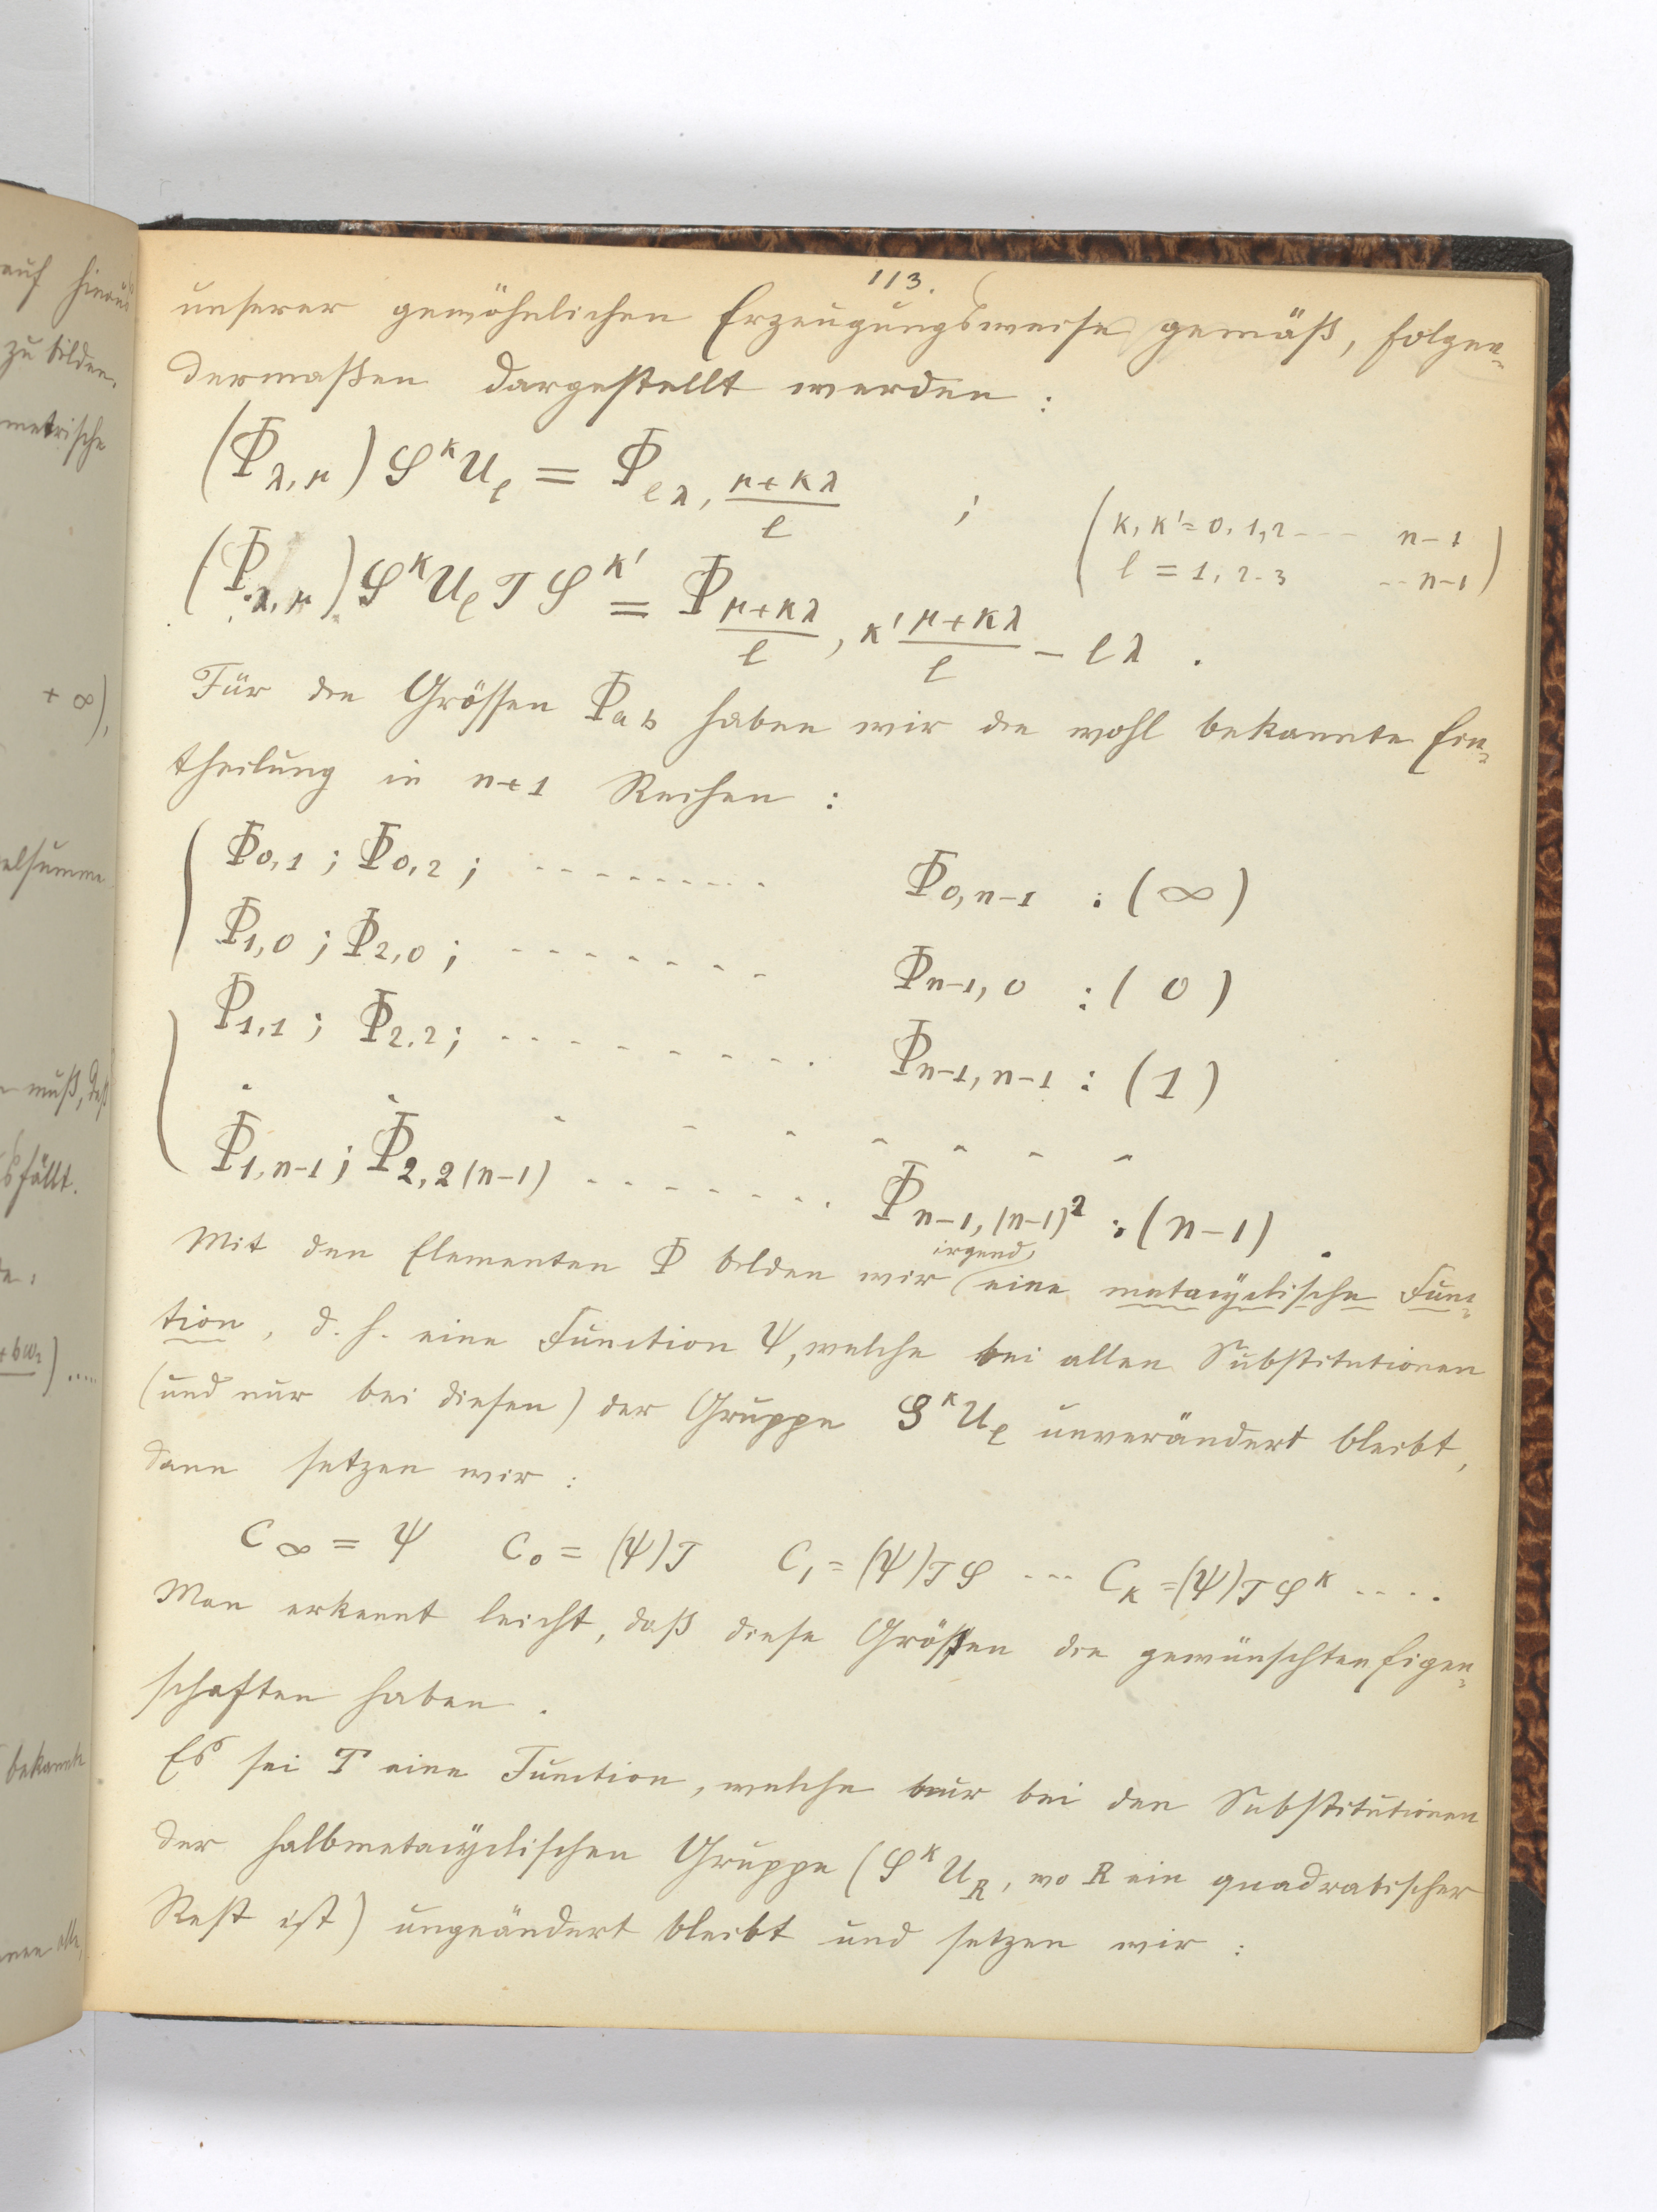 113.
unserer gewöhnlichen Erzeugungsweise gemäß, folgen-
dermaßen dargestellt werden :
(Φ_{λ,μ}) S^κ U_l = Φ_{lλ, (μ+κλ)/l} ; (κ, κ' = 0, 1, 2 --- n-1
(Φ_{λ,μ}) S^κ U_l T S^{κ'} = Φ_{(μ+κλ)/l, κ' (μ+κλ)/l - lλ} . l = 1, 2. 3 -- n-1)
Für die Grössen Φ_{ab} haben wir die wohl bekannte Ein-
theilung in n+1 Reihen :
Φ_{0,1} ; Φ_{0,2} ; --------- Φ_{0,n-1} : (∞)
Φ_{1,0} ; Φ_{2,0} ; ------- Φ_{n-1,0} : (0)
Φ_{1,1} ; Φ_{2,2} ; --------- Φ_{n-1,n-1} : (1)
. . - - - - - - -
Φ_{1,n-1} ; Φ_{2,2(n-1)} ------- Φ_{n-1,(n-1)^2} : (n-1) .
Mit den Elementen Φ bilden wir irgend eine metacyclische Func-
tion, d. h. eine Function Ψ, welche bei allen Substitutionen
(und nur bei diesen) der Gruppe S^κ U_l unverändert bleibt,
dann setzen wir :
C_∞ = Ψ C_0 = (Ψ)T C_1 = (Ψ)TS --- C_κ = (Ψ)TS^κ ....
Man erkennt leicht, daß diese Größen die gewünschten Eigen-
schaften haben .
Es sei T eine Function, welche nur bei den Substitutionen
der halbmetacyclischen Gruppe (S^κ U_R, wo R ein quadratischer
Rest ist) ungeändert bleibt und setzen wir :
auf hinaus
zu bilden.
metrische
+ ∞),
elsumme
muß, daß
sfällt.
+bω_2) .....
bekannte